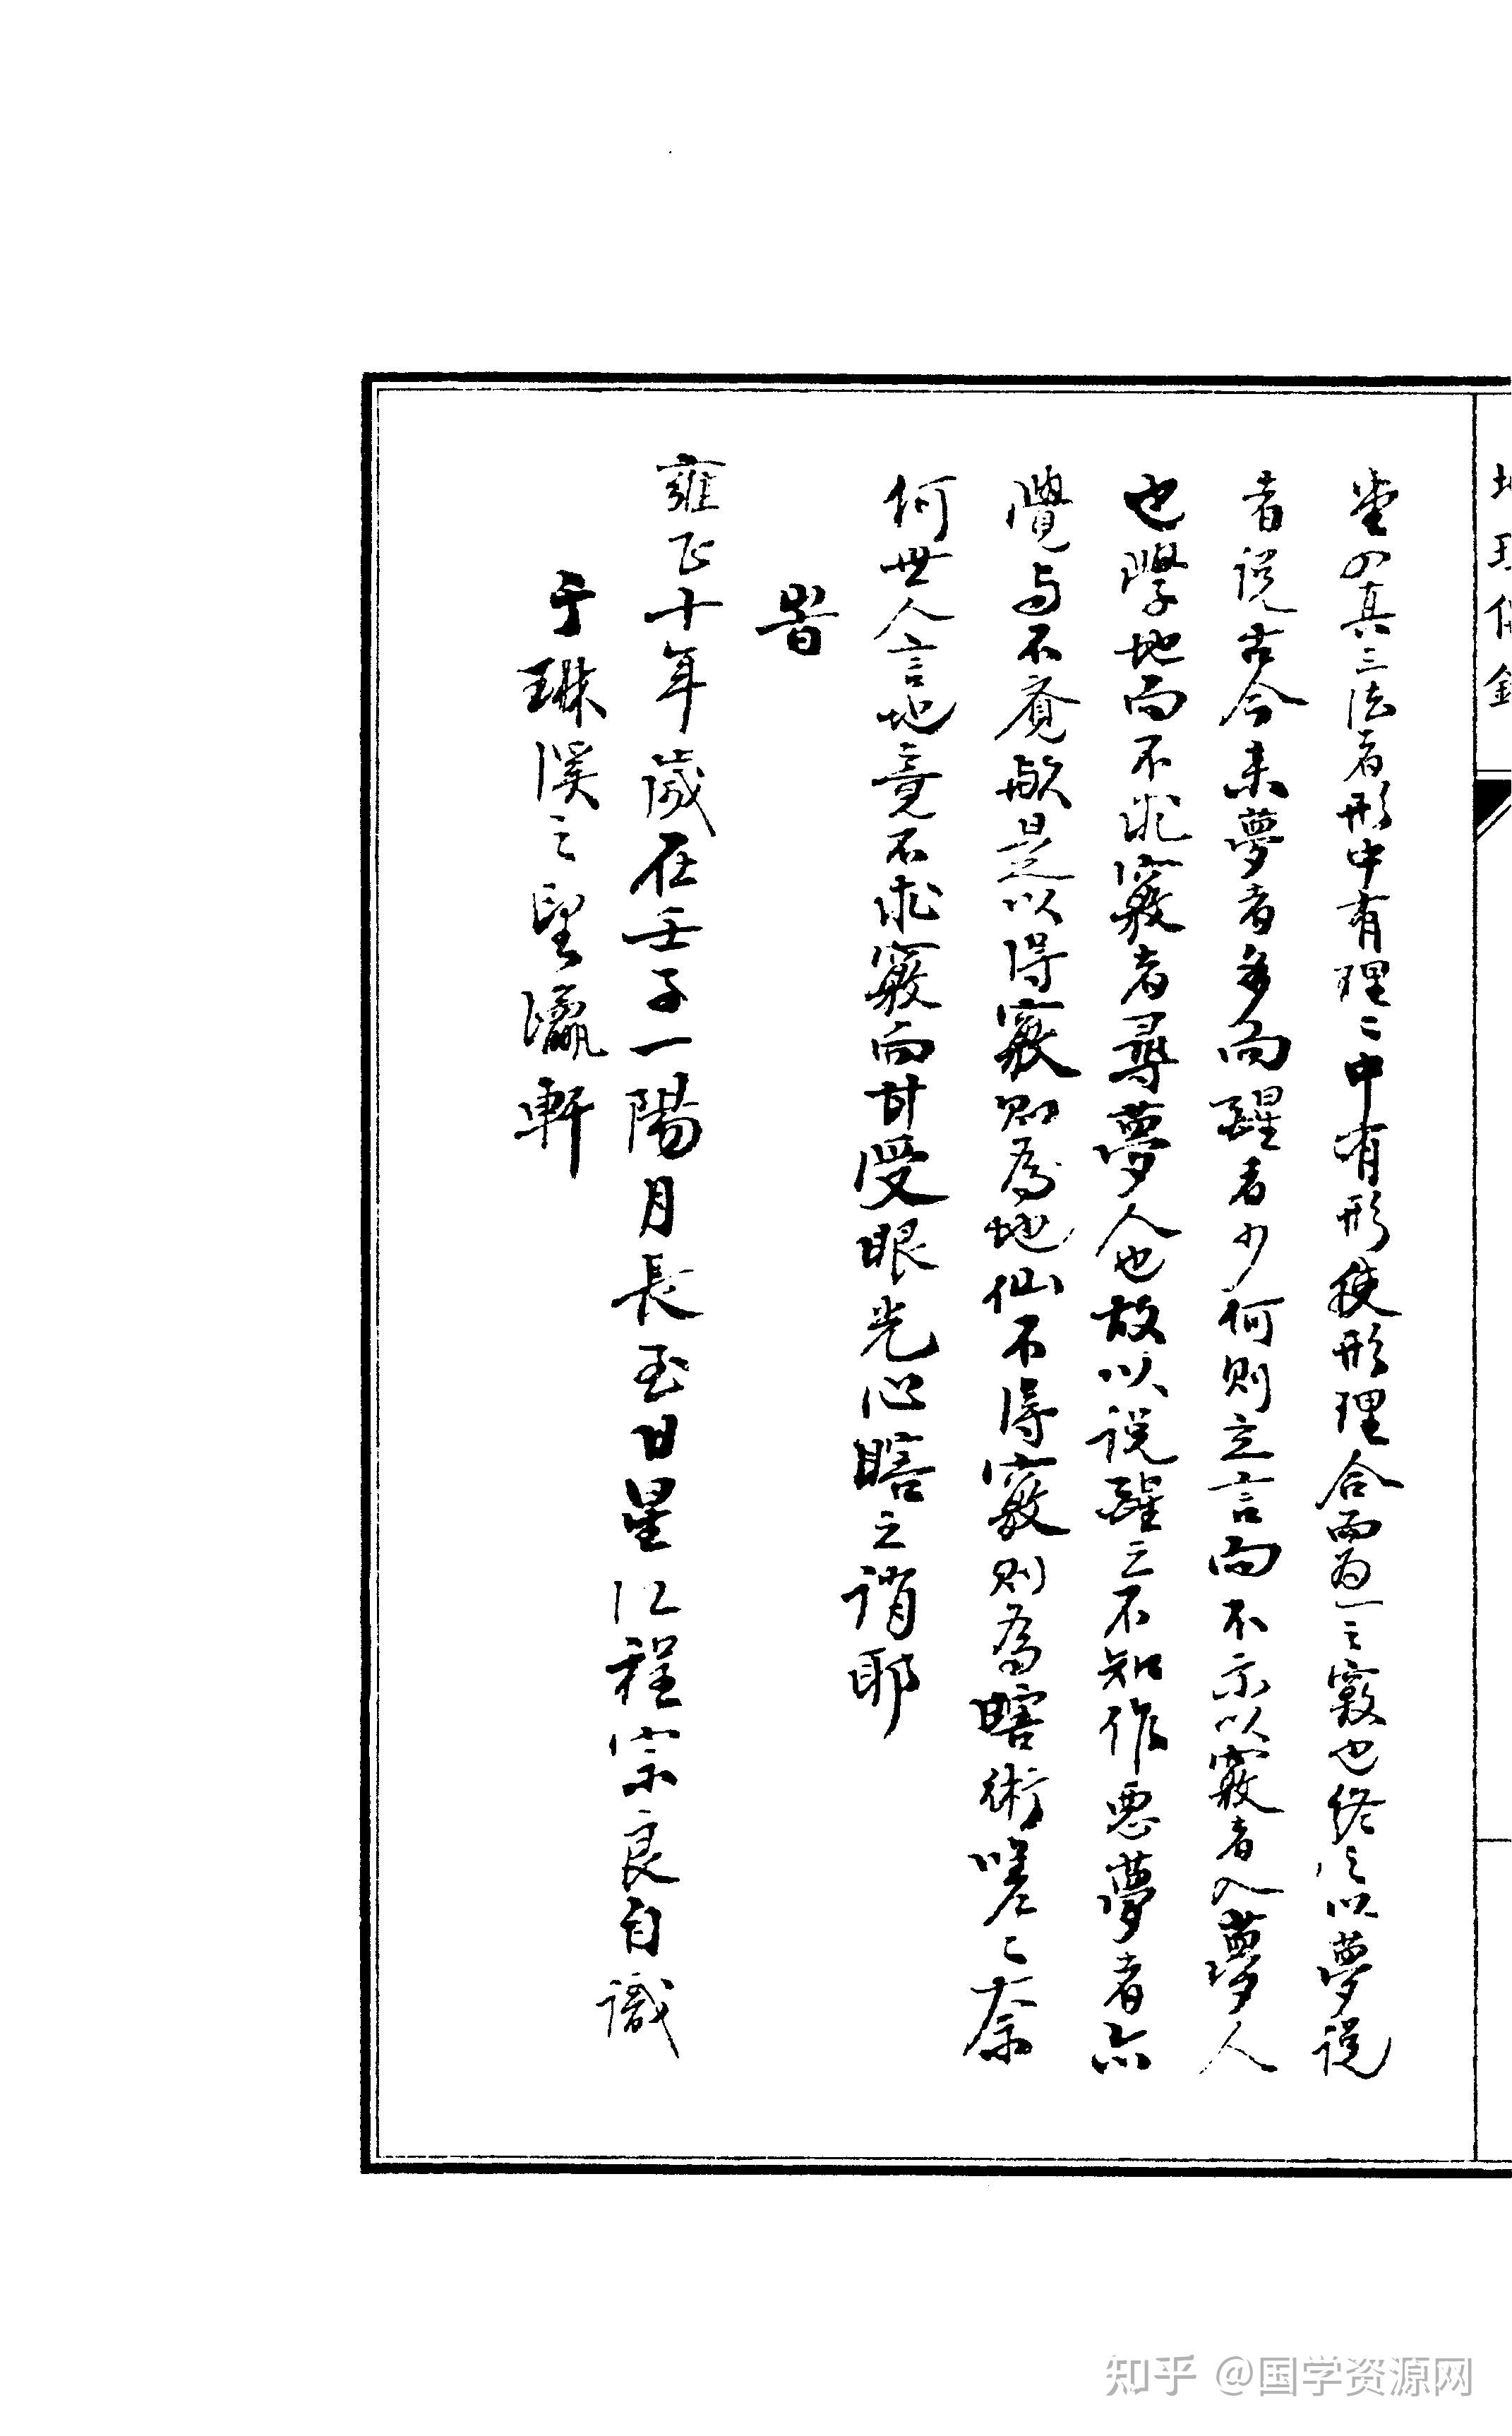 堂四真三法者形中有理〻中有形使形理合而為一之竅也終之以夢說
者說古今來夢者多而醒者少何則立言而不示以竅者入夢人
也學地而不求竅者尋夢人也故以說醒之不知作惡夢者亦
覺與不覺歟是以得竅則為地仙不得竅則為瞎術嗟〻奈
何世人言地竟不求竅而甘受眼光心瞎之誚耶
旹
雍正十年歲在壬子一陽月長至日星江程宗良自識
于琳溪之望瀛軒
知乎 @国学资源网